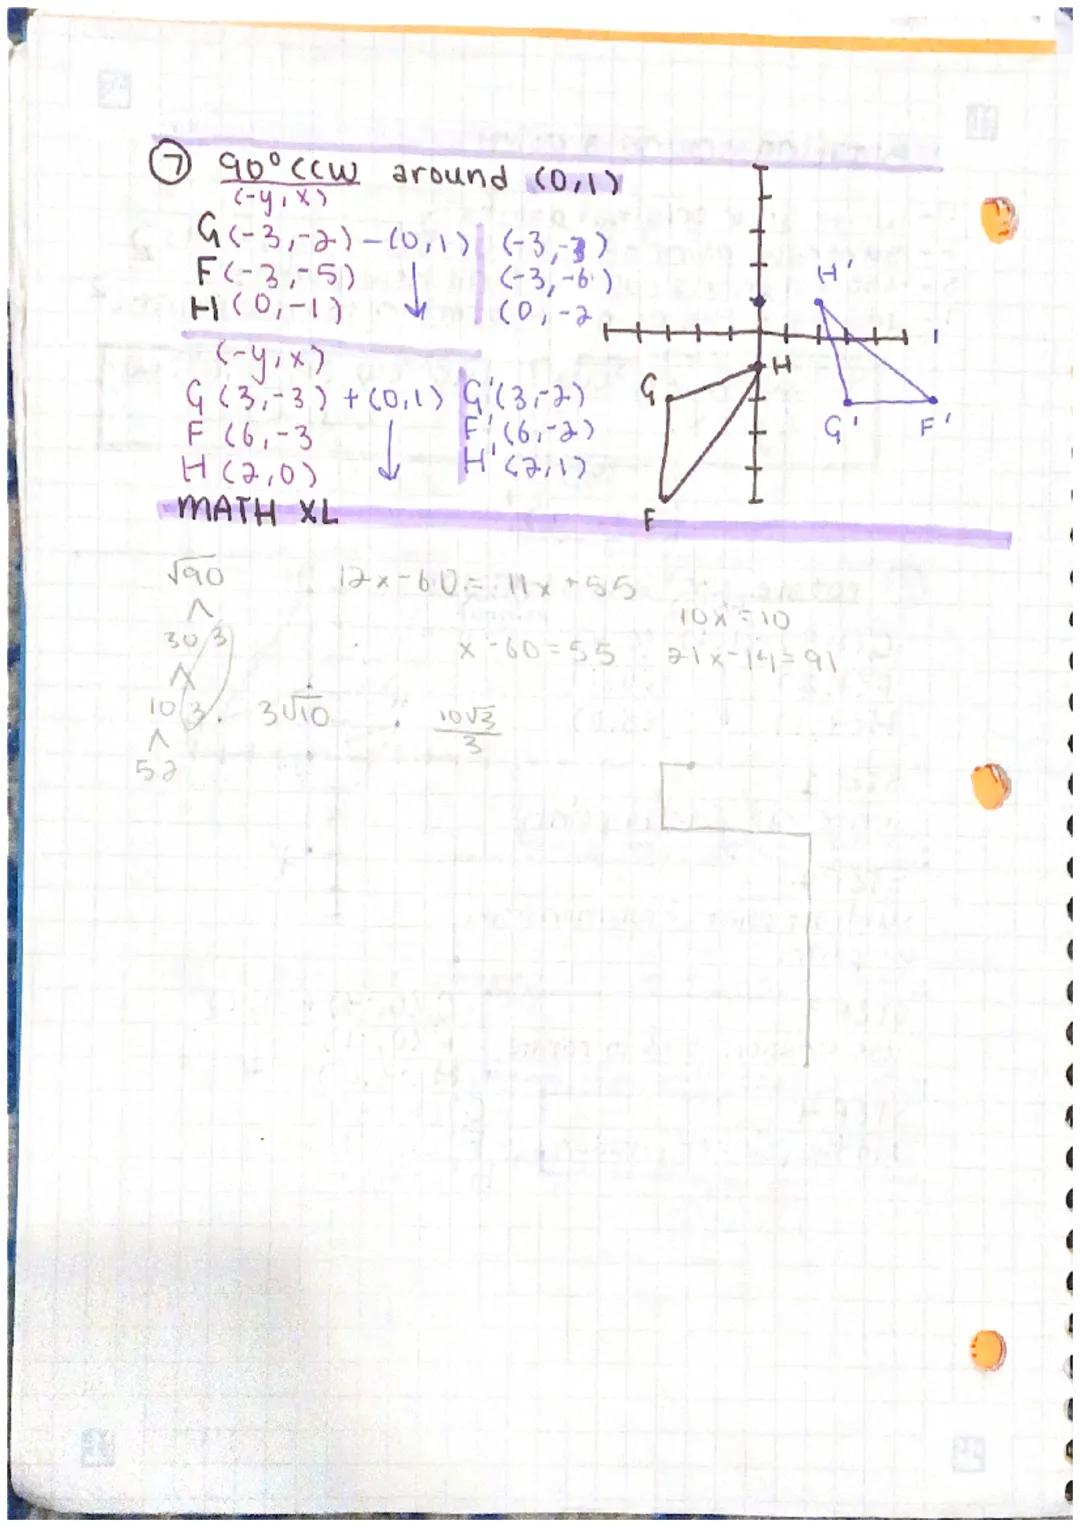 ⑦ 90° CCW around (0,1)
(-y,x)
G(-3,-2) - (0,1) (-3,-3)
F(-3,-5) ↓ (-3,-6)
H(0,-1) (0,-2
(-y,x)
G(3,-3) + (0,1) G'(3,-2)
F(6,-3 ↓ F'(6,-2)
H(2,0) H'(2,1)
MATH XL
H'
H
G
G'
F'
F
√90
30 3
10 3 . 3√10
52
12x-60 = 11x+55
10x=10
x-60=55
21x-14=91
10√3
3